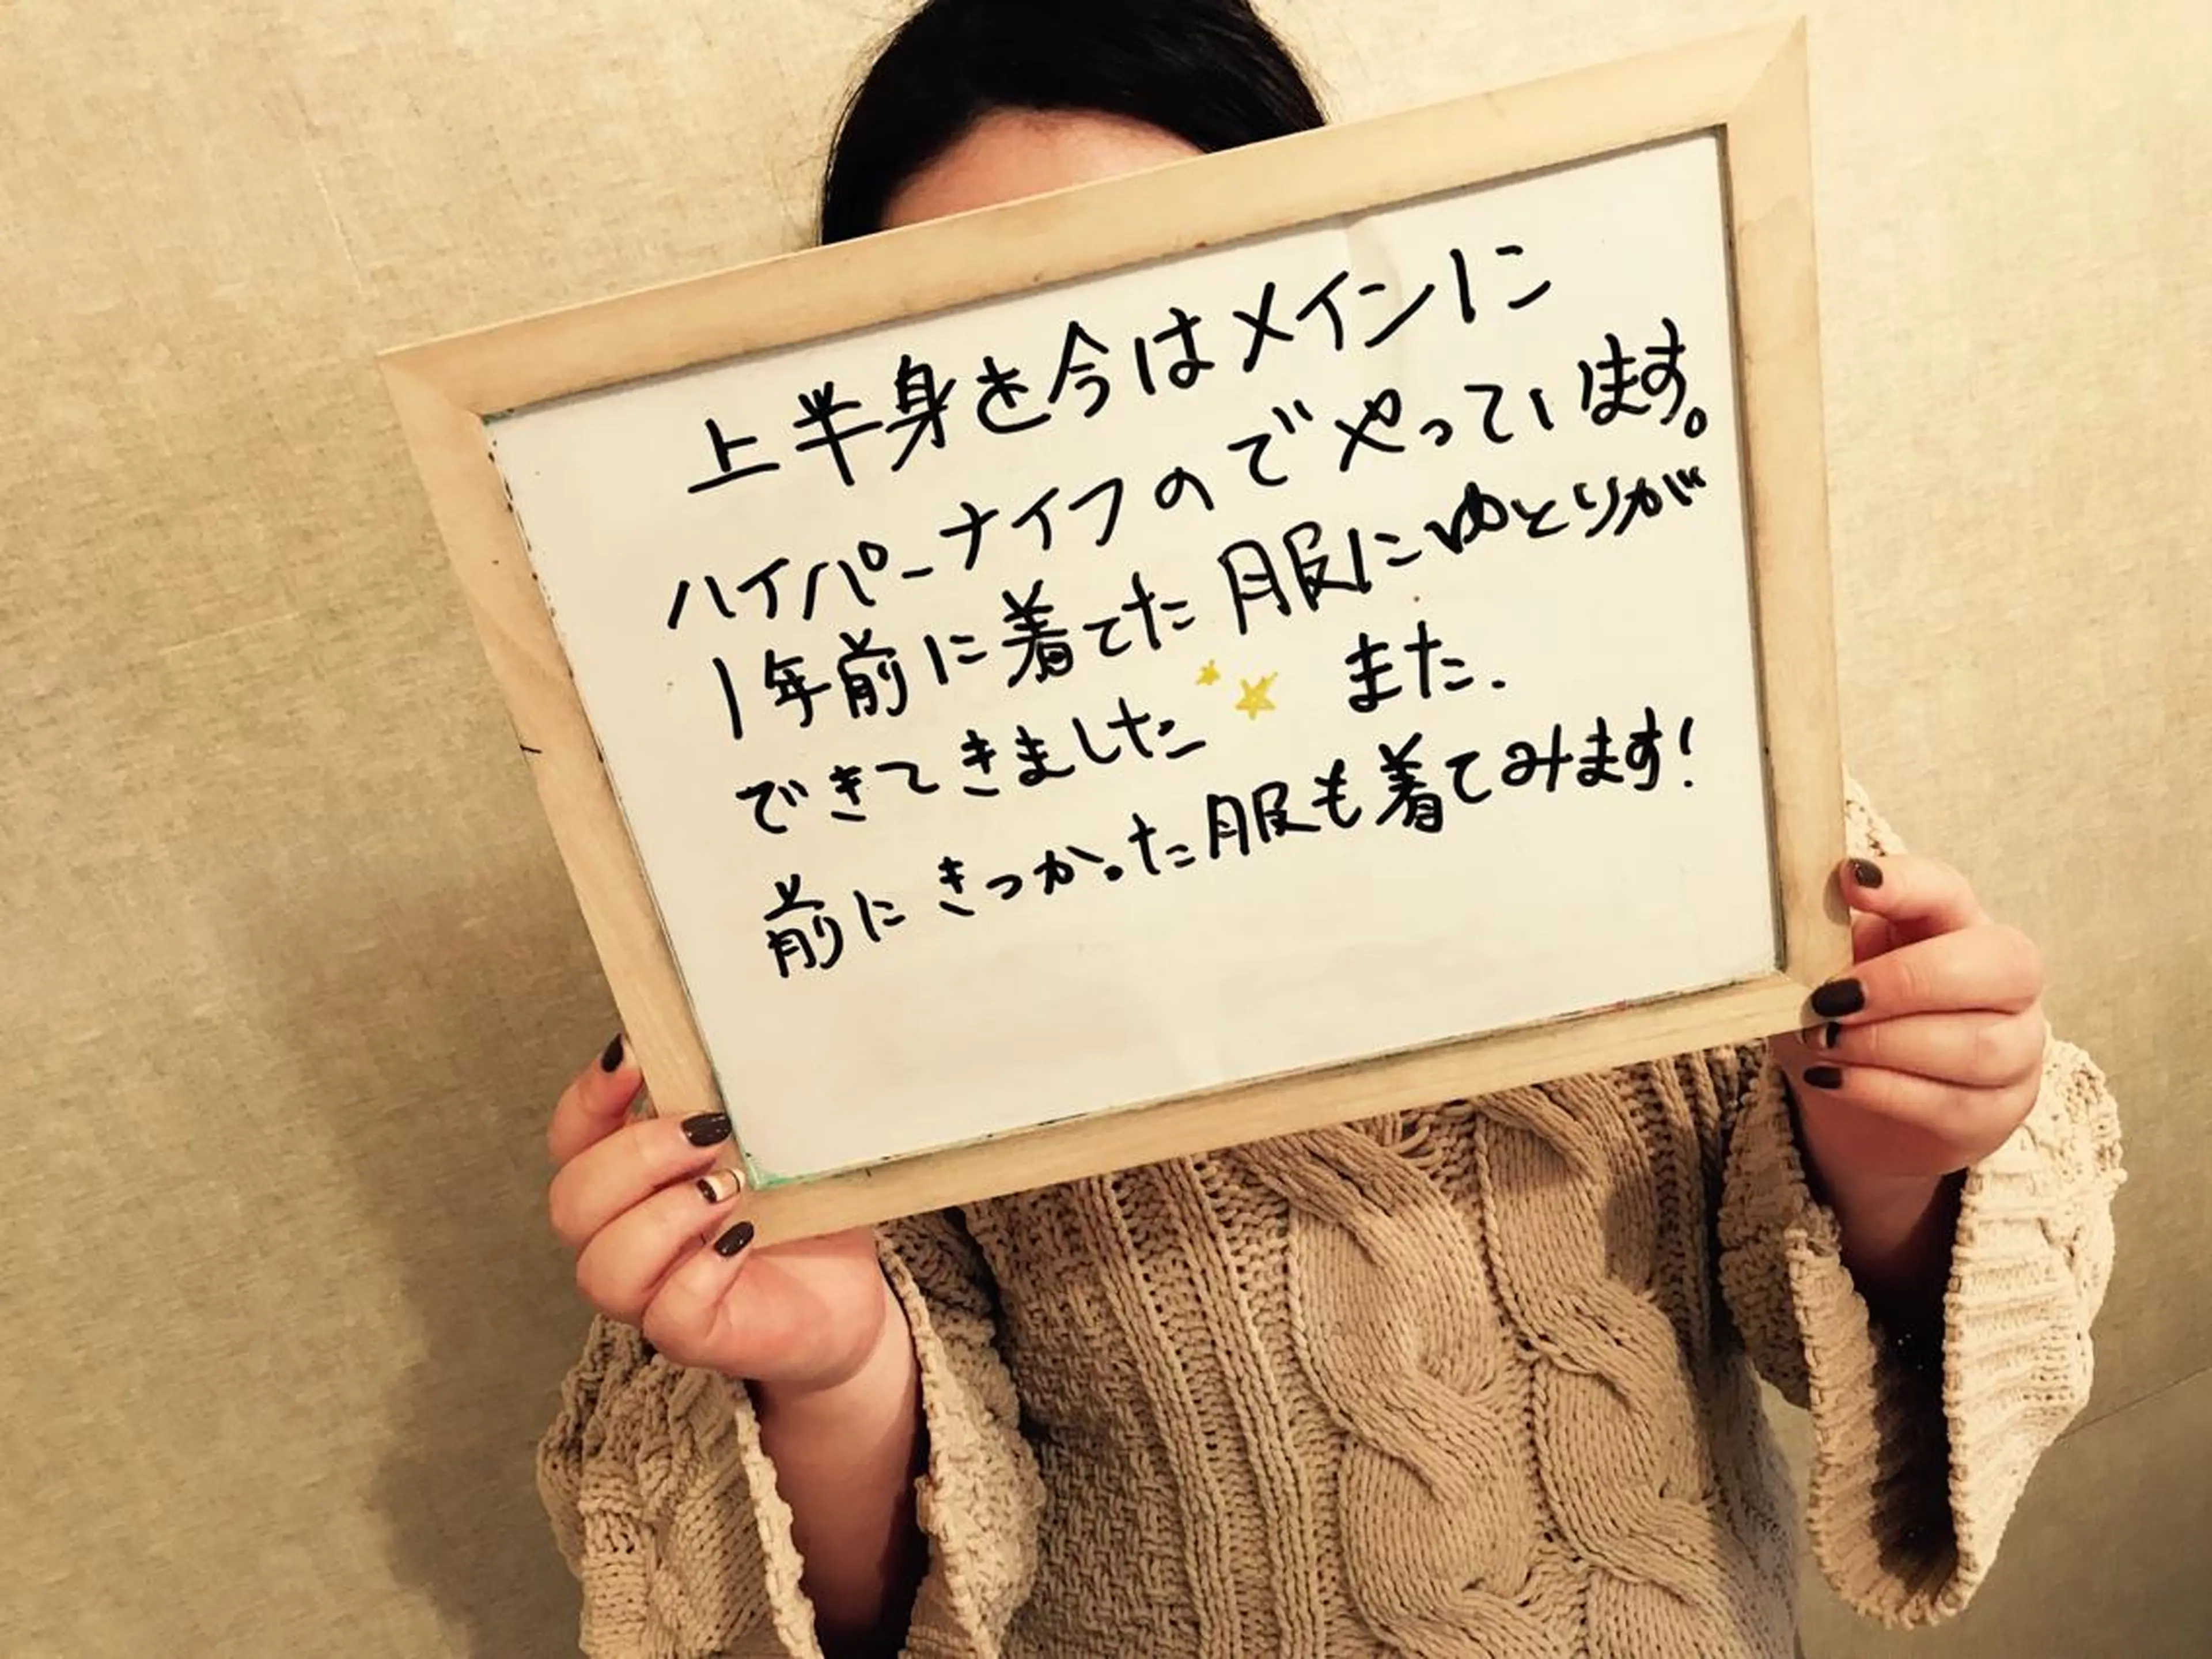 上半身を今はメインに
ハイパーナイフのでやっています。
1年前に着てた服にゆとりが
できてきました また.
前にきつかった服も着てみます!